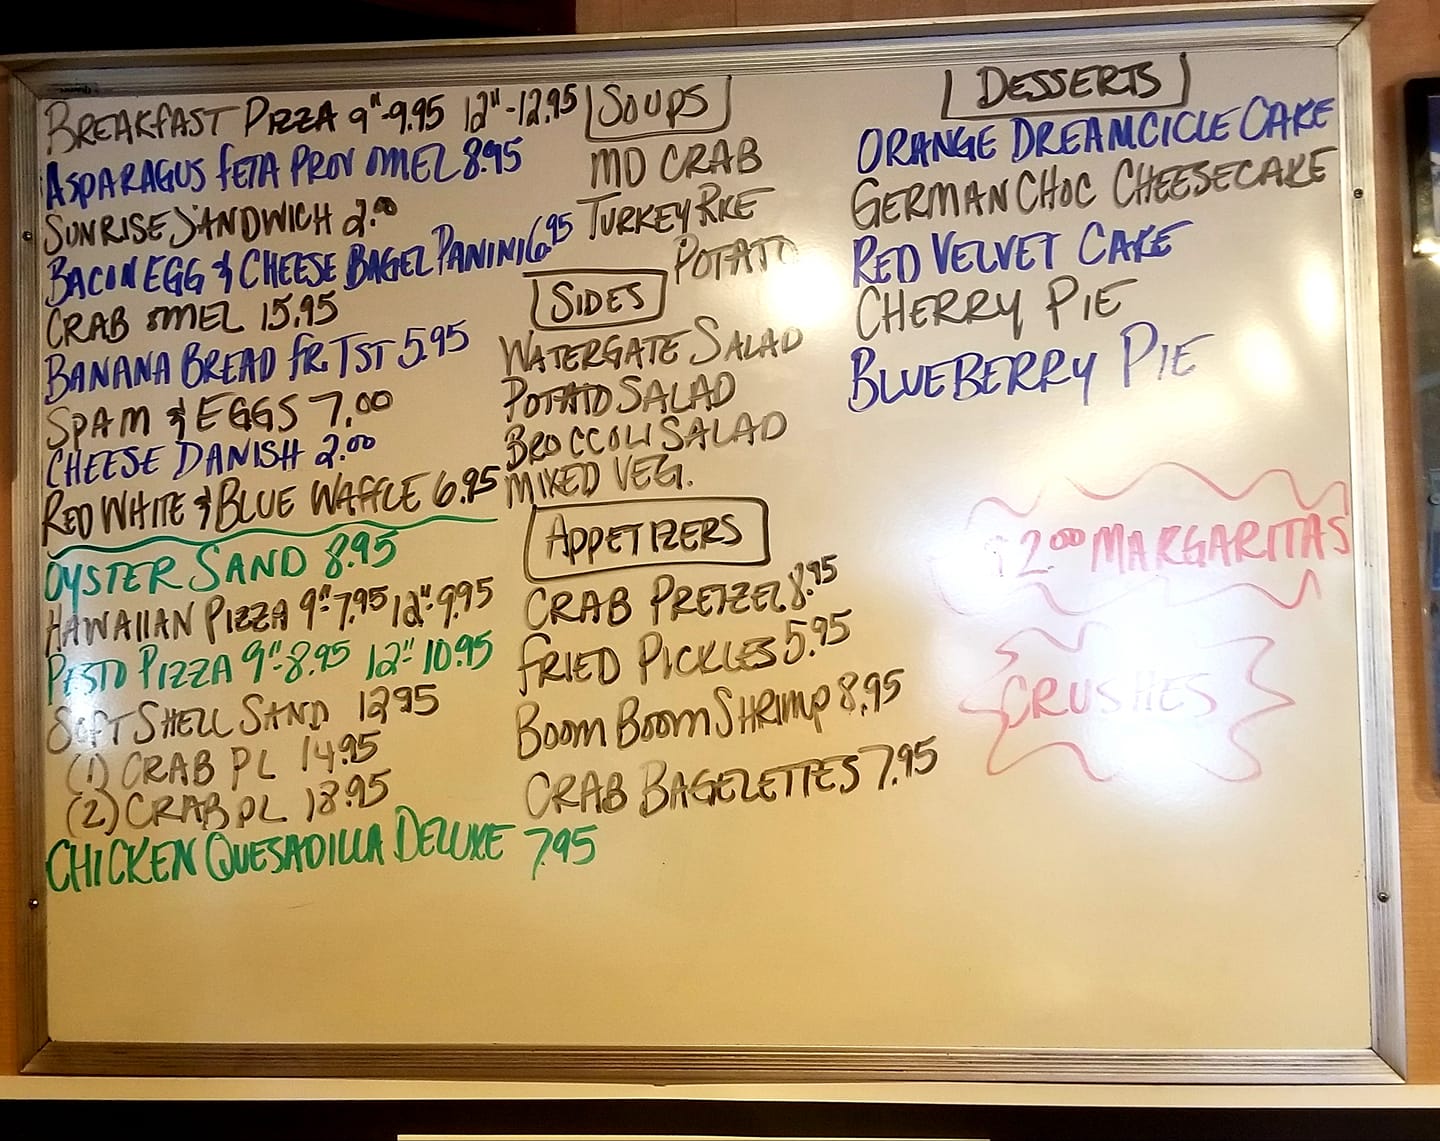 BREAKFAST PIZZA 9"-9.95 12"-12.95
ASPARAGUS FETA PROV OMEL 8.95
SUNRISE SANDWICH 2.00
BACON EGG & CHEESE BAGEL PANINI 6.95
CRAB OMEL 15.95
BANANA BREAD FR. TST 5.95
SPAM & EGGS 7.00
CHEESE DANISH 2.00
RED WHITE & BLUE WAFFLE 6.95
OYSTER SAND 8.95
HAWAIIAN PIZZA 9"-7.95 12"-9.95
PESTO PIZZA 9"-8.95 12"-10.95
SOFT SHELL SAND 12.95
(1) CRAB PL 14.95
(2) CRAB PL 18.95
CHICKEN QUESADILLA DELUXE 7.95
SOUPS
MD CRAB
TURKEY RICE
POTATO
SIDES
WATERGATE SALAD
POTATO SALAD
BROCCOLI SALAD
MIXED VEG.
APPETIZERS
CRAB PRETZEL 8.95
FRIED PICKLES 5.95
BOOM BOOM SHRIMP 8.95
CRAB BAGELETTES 7.95
DESSERTS
ORANGE DREAMCICLE CAKE
GERMAN CHOC CHEESECAKE
RED VELVET CAKE
CHERRY PIE
BLUEBERRY PIE
$2.00 MARGARITAS
CRUSHES